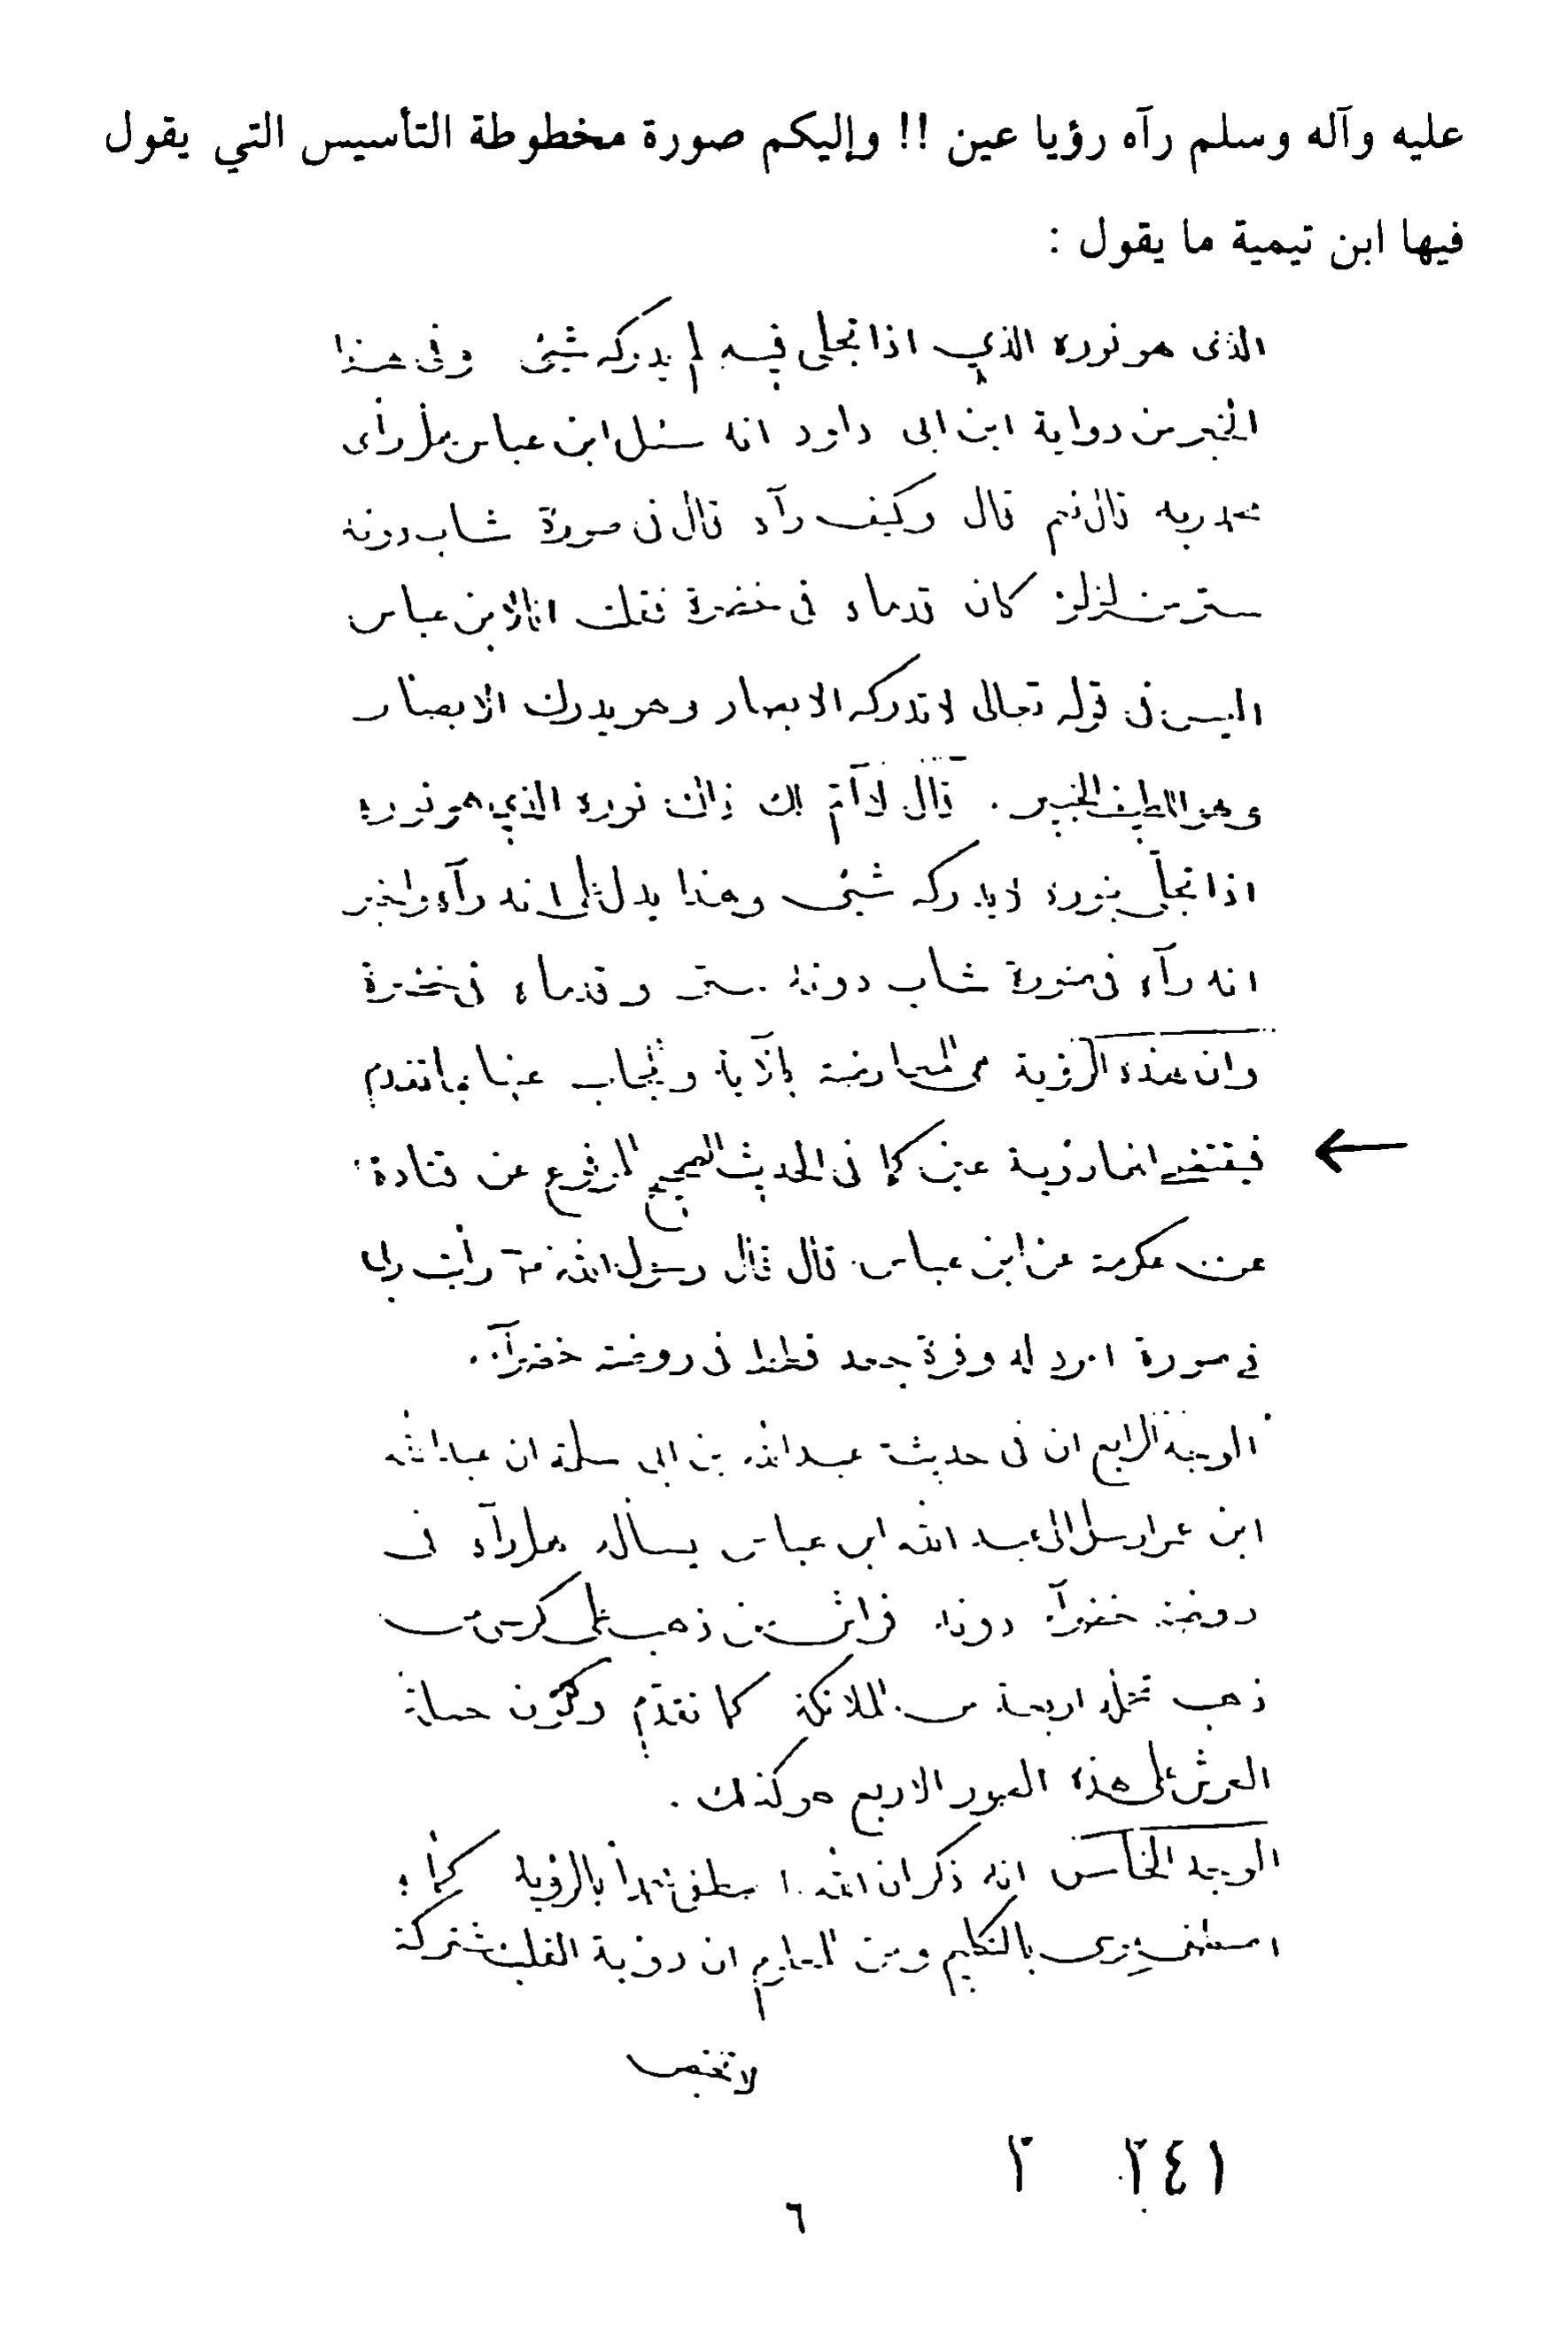 عليه وآله وسلم رآه رؤيا عين !! وإليكم صورة مخطوطة التأسيس التي يقول
فيها ابن تيمية ما يقول :
الذى هو نوره الذي اذا تجلى فيه لم يدركه شيئ وفى هذا
الخبر من رواية ابن ابى داود انه سئل ابن عباس هل رأى
محمد ربه قال نعم قال وكيف رآه قال فى صورة شاب دونه
ستر من لؤلؤ كان قدماه فى خضرة فقلت انا لابن عباس
اليس فى قوله تعالى لا تدركه الابصار وهو يدرك الابصار
وهو اللطيف الخبير . قال لا أم لك ذاك نوره الذي هو نوره
اذا تجلى بنوره لا يدركه شيئ وهذا يدل على انه رآه واخبر
انه رآه فى صورة شاب دونه ستر وقدماه فى خضرة
وان هذه الرؤية هى المعارضة بالآية ويجاب عنها بما تقدم
فيقتضى انها رؤية عين كما فى الحديث الصحيح المرفوع عن قتادة
عن عكرمة عن ابن عباس قال قال رسول الله ص رأيت ربى
فى صورة امرد له وفرة جعد قطط فى روضة خضرآء.
الوجه الرابع ان فى حديث عبد الله بن ابى سلمة ان عبد الله
ابن عمر ارسل الى عبد الله ابن عباس يسأله هل رآه فى
روضة خضرآء دونه فراش من ذهب على كرسى من
ذهب تحمله اربعة من الملائكة كما تقدم وكون حملة
العرش على هذه الصور الاربع هو كذلك .
الوجه الخامس انه ذكر ان الله اصطفى محمدا بالرؤية كما
اصطفى موسى بالتكليم ومن المعلوم ان رؤية القلب مشتركة
لا تختص
٢٤١ ٢
٦